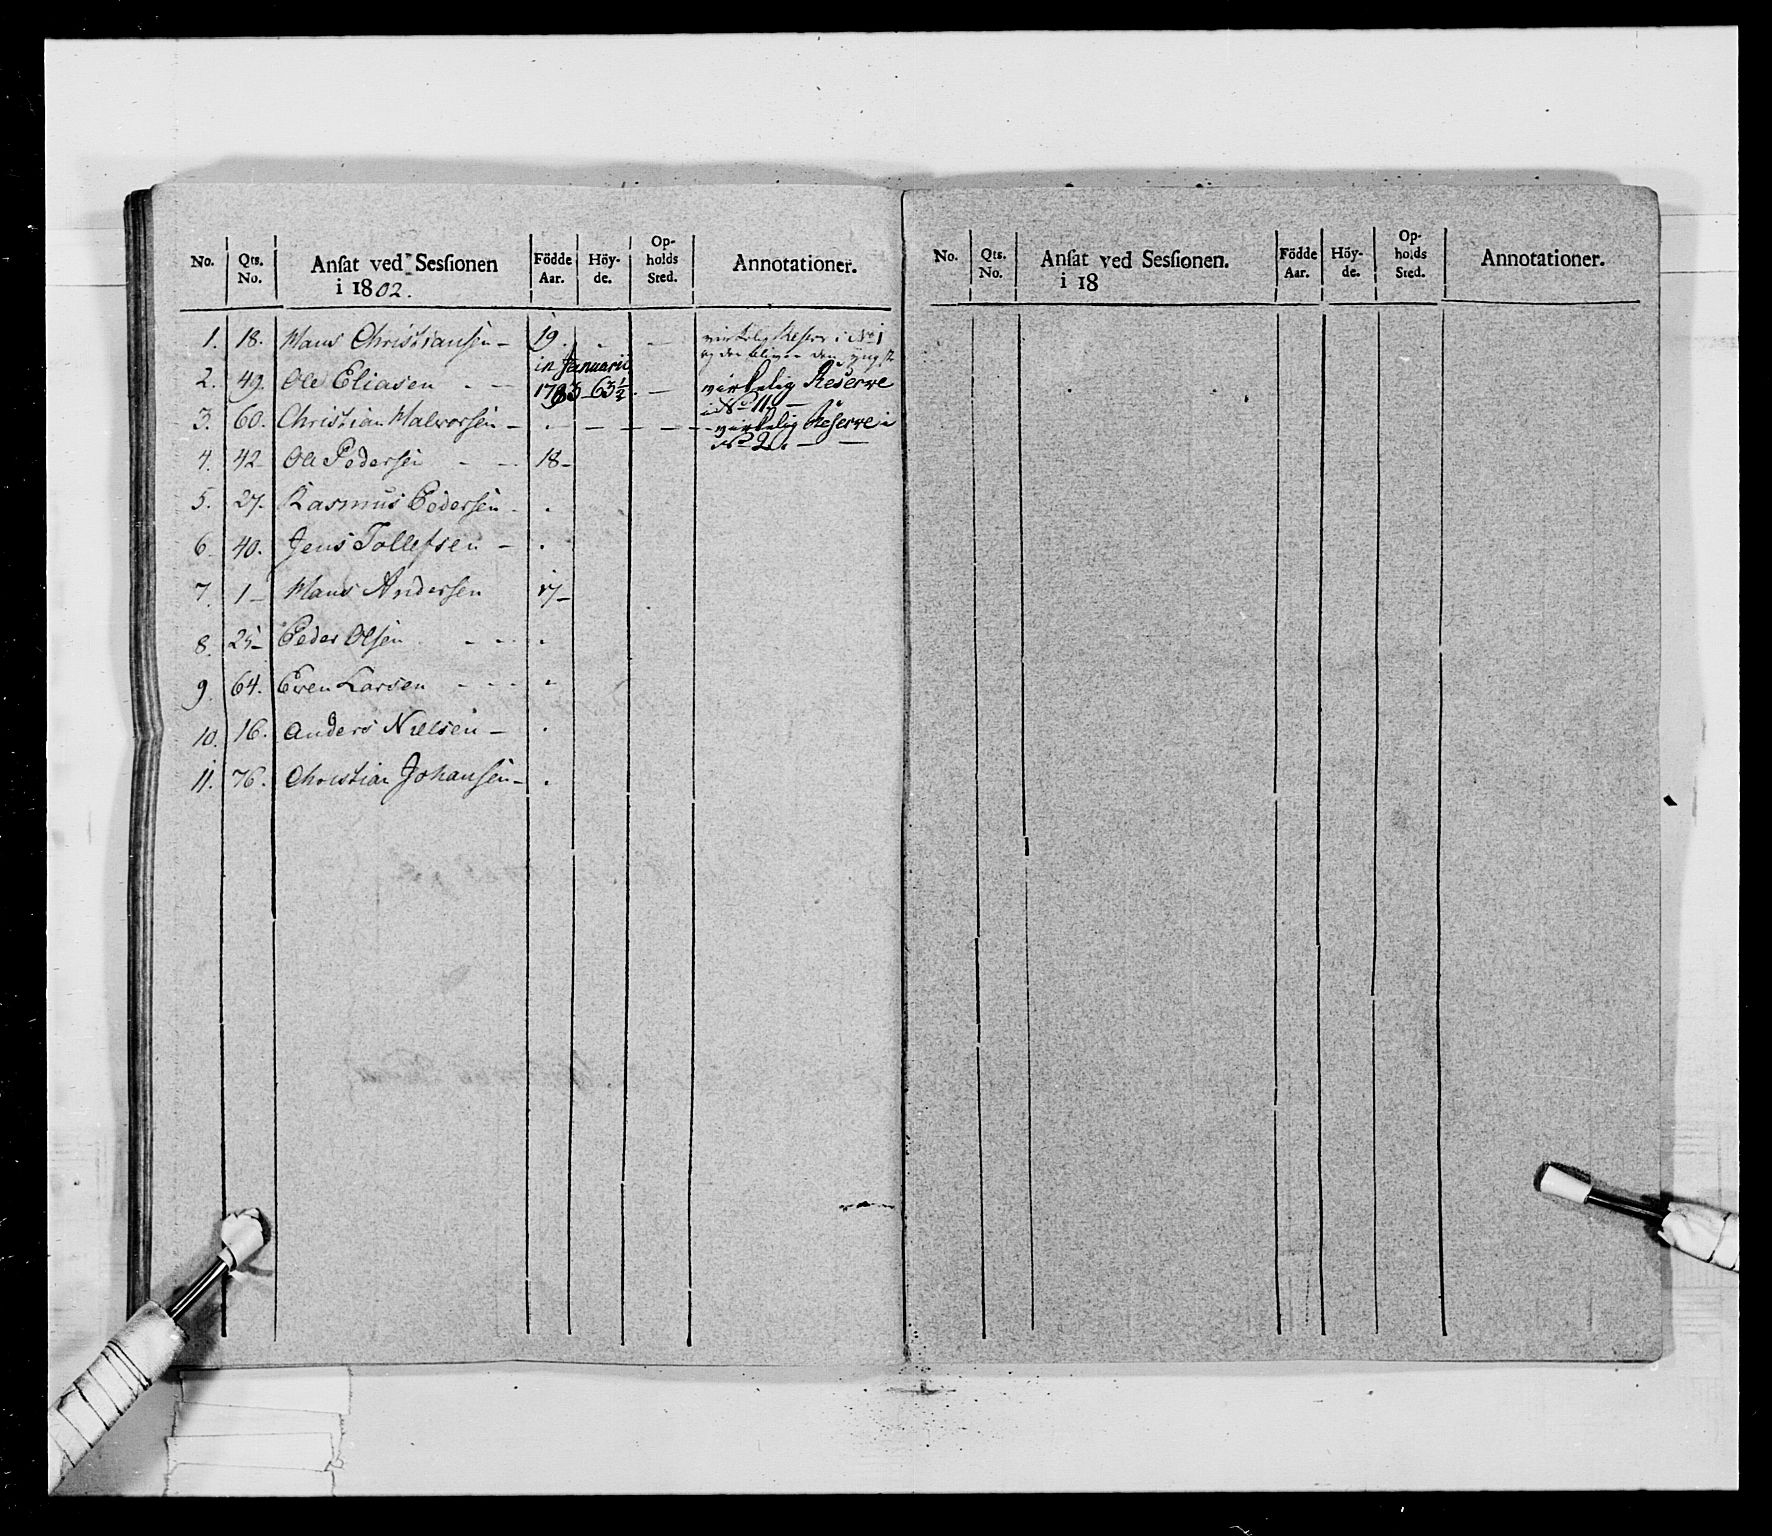 No. Qts. No. Ansat ved Sessionen i 1802. Födde Aar. Höy-de. Op-holds Sted. Annotationer.
1. 18. Hans Christiansen - 19. virkelig Reserve i No 1
og den bliver den yngst
in Januario
2. 49. Ole Eliasen - - 1783 - 63½. - virkelig Reserve
i No 11 -
3. 60. Christian Halvorsen - . - - - - virkelig Reserve i
No 2. - -
4. 42 - Ole Pedersen - - 18 -
5. 27. Rasmus Pedersen - .
6. 40. Jens Tollefsen - .
7. 1 - Hans Andersen 17 -
8. 25 - Peder Olsen - - - .
9. 64. Even Larsen - - - -
10. 16. Anders Nielsen - .
11. 76. Christian Johansen - .
No. Qts. No. Ansat ved Sessionen. i 18 Födde Aar. Höy-de. Op-holds Sted. Annotationer.